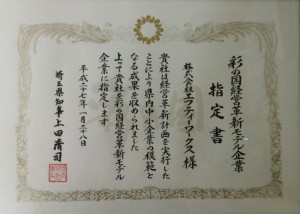 彩の国経営革新モデル企業
指定書
株式会社エフティーワークス 様
貴社は経営革新計画を実行した
ことにより県内中小企業の模範と
なる成果を収められました
よって貴社を彩の国経営革新モデル
企業に指定します
平成二十七年一月二十八日
埼玉県知事 上田清司